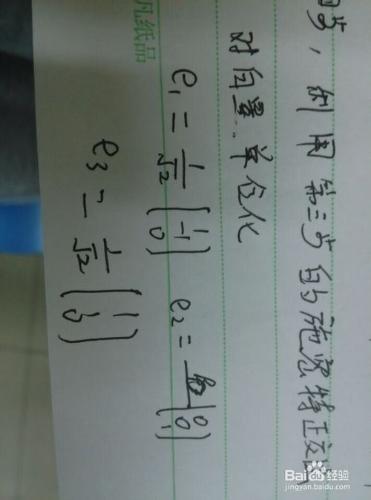 步，利用第三步的施密特正交
对向量.单位化
e₁ = 1/√2 (1 -1 0) e₂ = (0 0 1)
e₃ = 1/√2 (1 1 0)
纸品
Baidu经验
jingyan.baidu.com